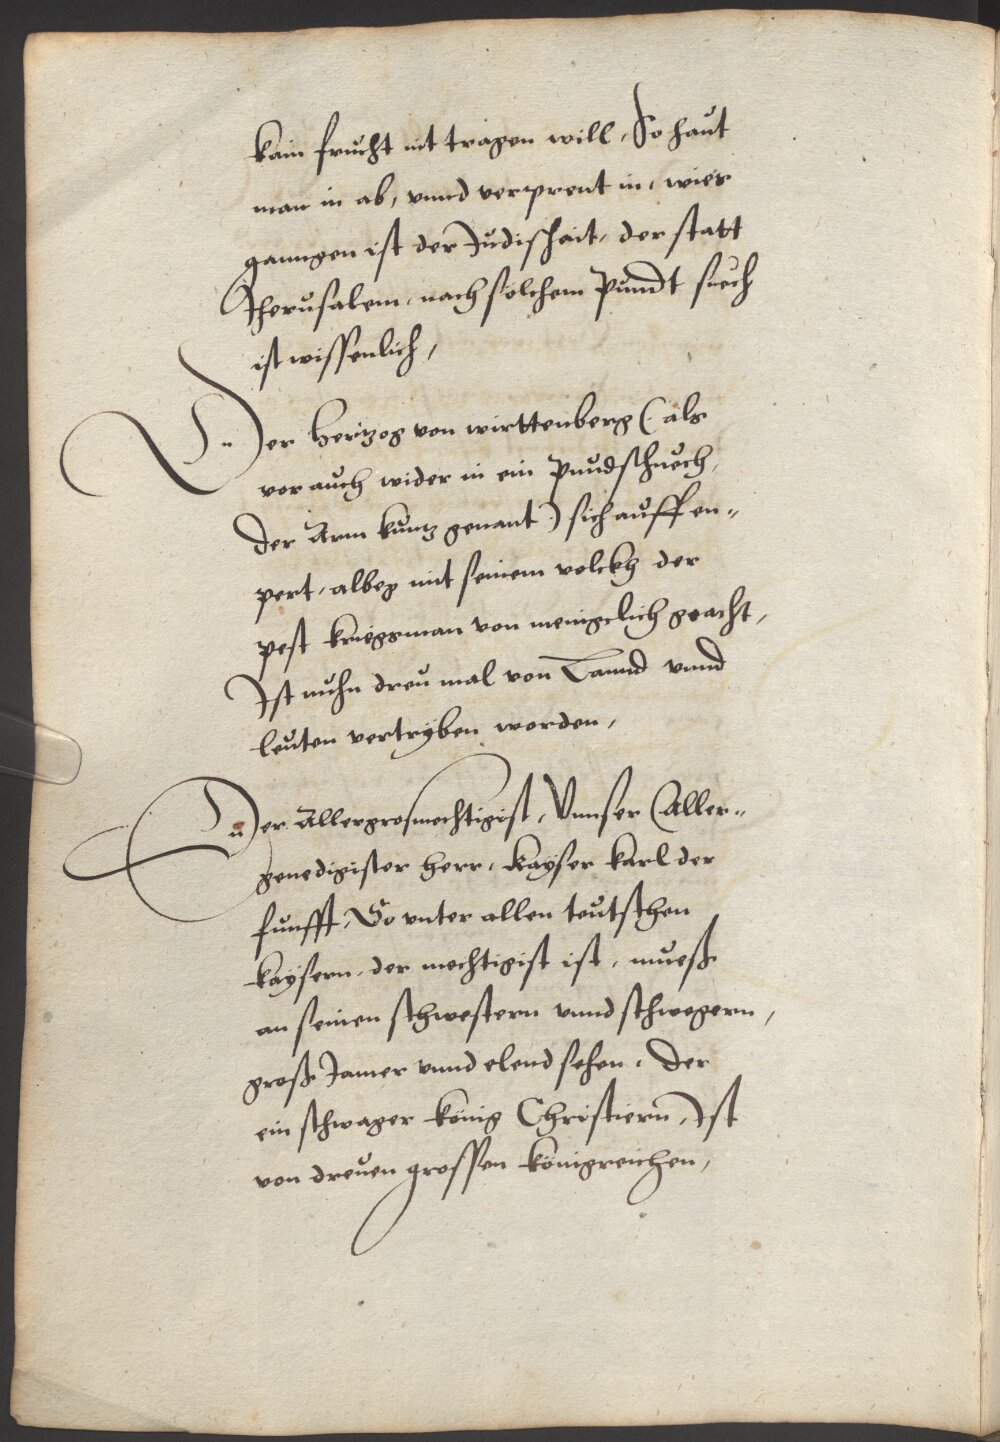 kain frucht nit tragen will, So haut
man in ab, vnnd verprent in, wies
ganngen ist der Judischait, der statt
Jherusalem, nach solchem Pundt
ist wissenlich,
Der Hertzog von wirttenberg (als
vor auch wider in ein Pundschuech,
der Arm kuntz genant) sich auff en-
pert, alweg mit seinem volckh der
pest kriegsman von menigclich geacht,
Ist nuhn dreu mal von Lannd vnnd
leuten vertryben worden,
Der Allergrosmechtigist, Vnnser Aller-
genedigister herr, Kayser karl der
funfft, So vnter allen teutschen
kaysern, der mechtigist ist, muess
an seinen schwestern vnnd schwegern,
gross Jamer vnnd elend sehen, Der
ein schwager könig Christiern, Ist
von dreuen grossen königreichen,